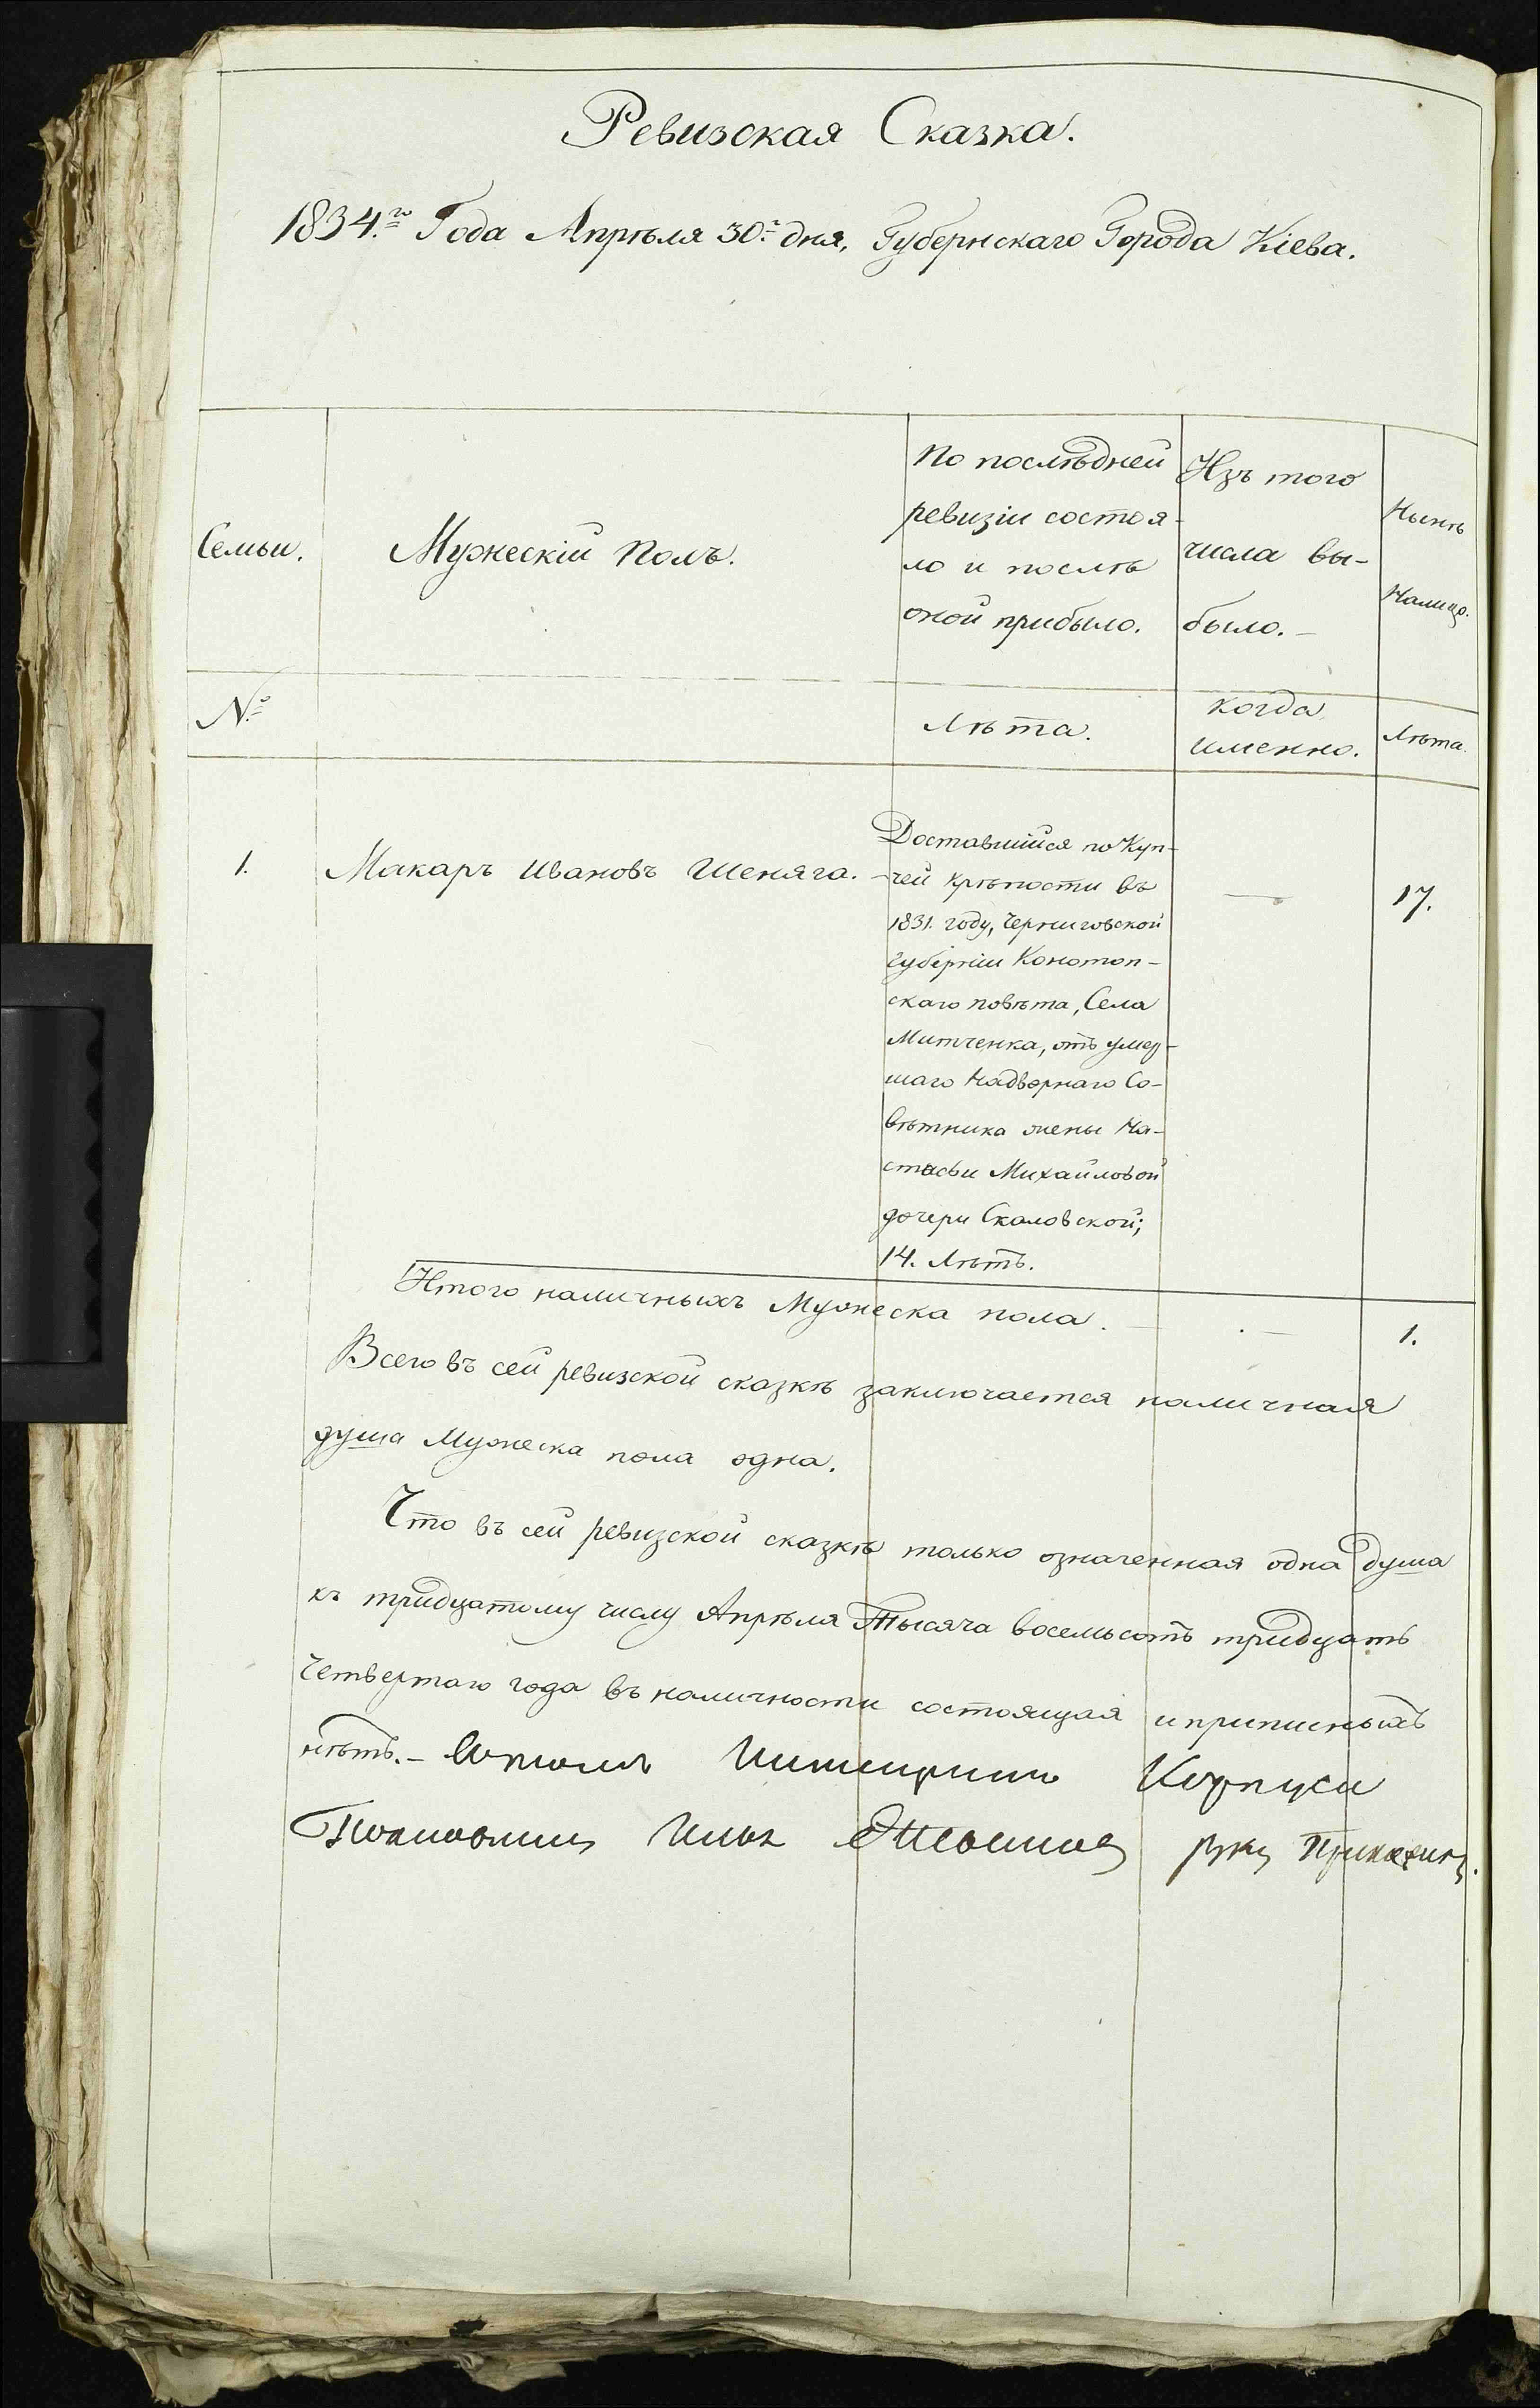 Ревизская Сказка.
1834.го Года Апрѣля 30.г дня, Губернскаго Города Кіева.
Семьи.
Мужескій Полъ.
По послѣдней
ревизіи состоя-
ло и послѣ
оной прибыло.
Изъ того
числа вы-
было.-
Нынѣ
Налицо.
№
Лѣта.
когда
именно.
Лѣта.
1.
Макаръ Ивановъ Шеняга. -
Доставшийся по Куп-
чей крѣпости въ
1831. году, Черниговской
Губерніи Конотоп-
скаго повѣта, Села
Митченка, отъ умер-
шаго Надворнаго Со-
вѣтника жены На-
стасьи Михайловой
дочери Скаловской;
14. Лѣтъ.
—
17.
Итого наличныхъ Мужеска пола. - . -
1.
Всего въ сей ревизской сказкѣ заключается наличная
душа Мужеска пола одна.
Что въ сей ревизской сказкѣ только означенная одна душа
къ тридцатому числу Апрѣля Тысяча восемьсотъ тридцать
Четвертаго года въ наличности состоящая и приписныхъ
нѣтъ.- Корпуса
руку Приложилъ.